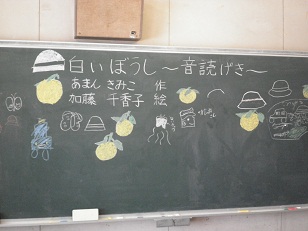 白いぼうし〜音読げき〜
あまん きみこ 作
加藤 千香子 絵